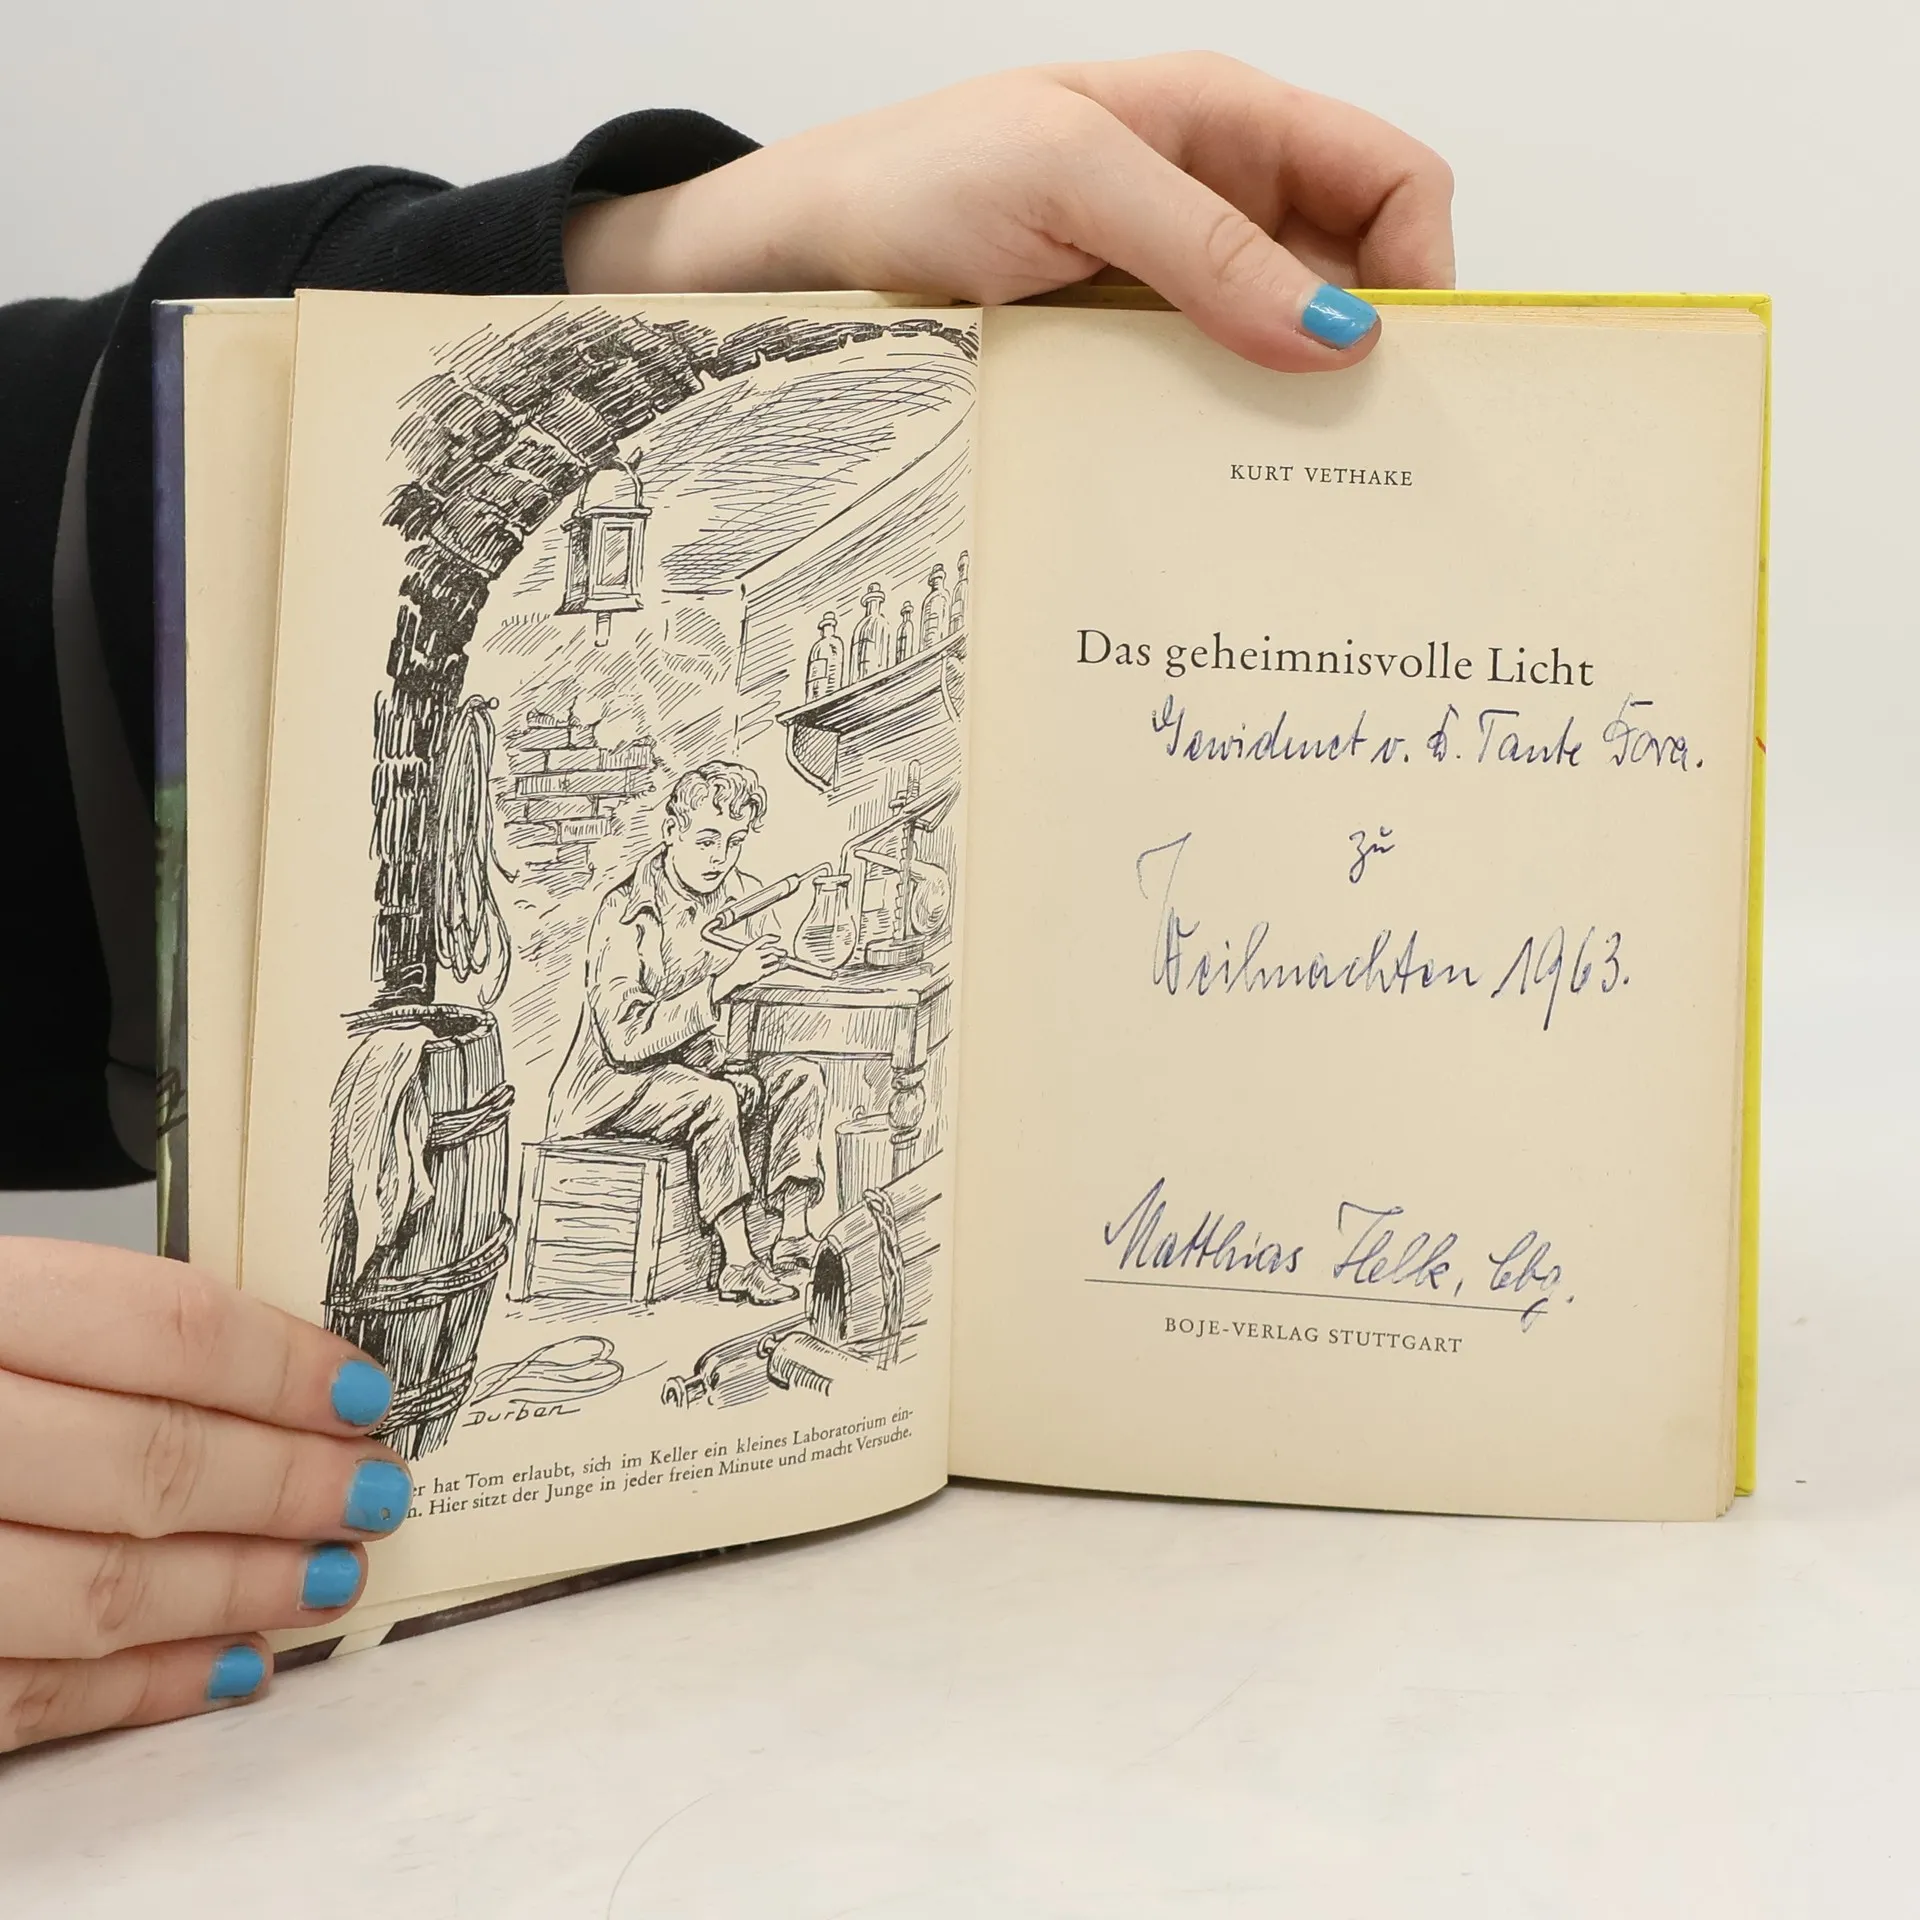 Durban
er hat Tom erlaubt, sich im Keller ein kleines Laboratorium ein-
n. Hier sitzt der Junge in jeder freien Minute und macht Versuche.
KURT VETHAKE
Das geheimnisvolle Licht
Gewidmet v. D. Tante Dora.
zu
Weihnachten 1963.
Matthias Helk, Cbg.
BOJE-VERLAG STUTTGART